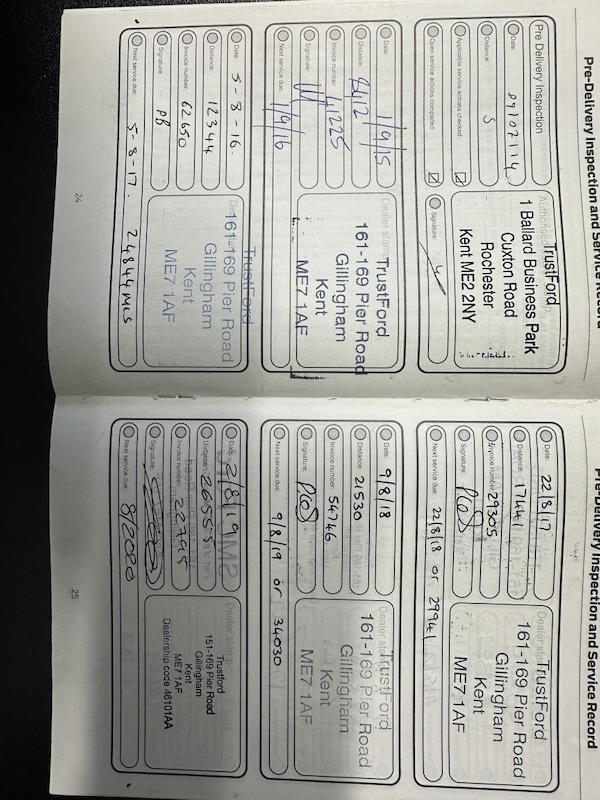 Pre-Delivery Inspection and Service Record
Pre Delivery Inspection
Date: 09/07/14
Distance: 5
Applicable service actions checked
Open service actions completed
Signature:
TrustFord
1 Ballard Business Park
Cuxton Road
Rochester
Kent ME2 2NY
Date: 1/9/15
Distance:
Invoice number: 41225
Signature:
Next service due: 1/9/16
Dealer stamp
TrustFord
161-169 Pier Road
Gillingham
Kent
ME7 1AF
Date: 5-8-16.
Distance: 12344
Invoice number: 62650
Signature: PB
Next service due: 5-8-17. 24844MLS
TrustFord
161-169 Pier Road
Gillingham
Kent
ME7 1AF
24
Pre-Delivery Inspection and Service Record
Date: 22/8/17
Distance: 17441
Invoice number: 29305
Signature:
Next service due: 22/8/18 or 29941
TrustFord
161-169 Pier Road
Gillingham
Kent
ME7 1AF
Date: 9/8/18
Distance: 21530
Invoice number: 54746
Signature:
Next service due: 9/8/19 or 34030
TrustFord
161-169 Pier Road
Gillingham
Kent
ME7 1AF
Date: 2/8/19
Distance: 26555
Invoice number: 22795
Signature:
Next service due: 8/2020
Dealer stamp
Trustford
151-169 Pier Road
Gillingham
Kent
ME7 1AF
Dealership code 46101AA
25